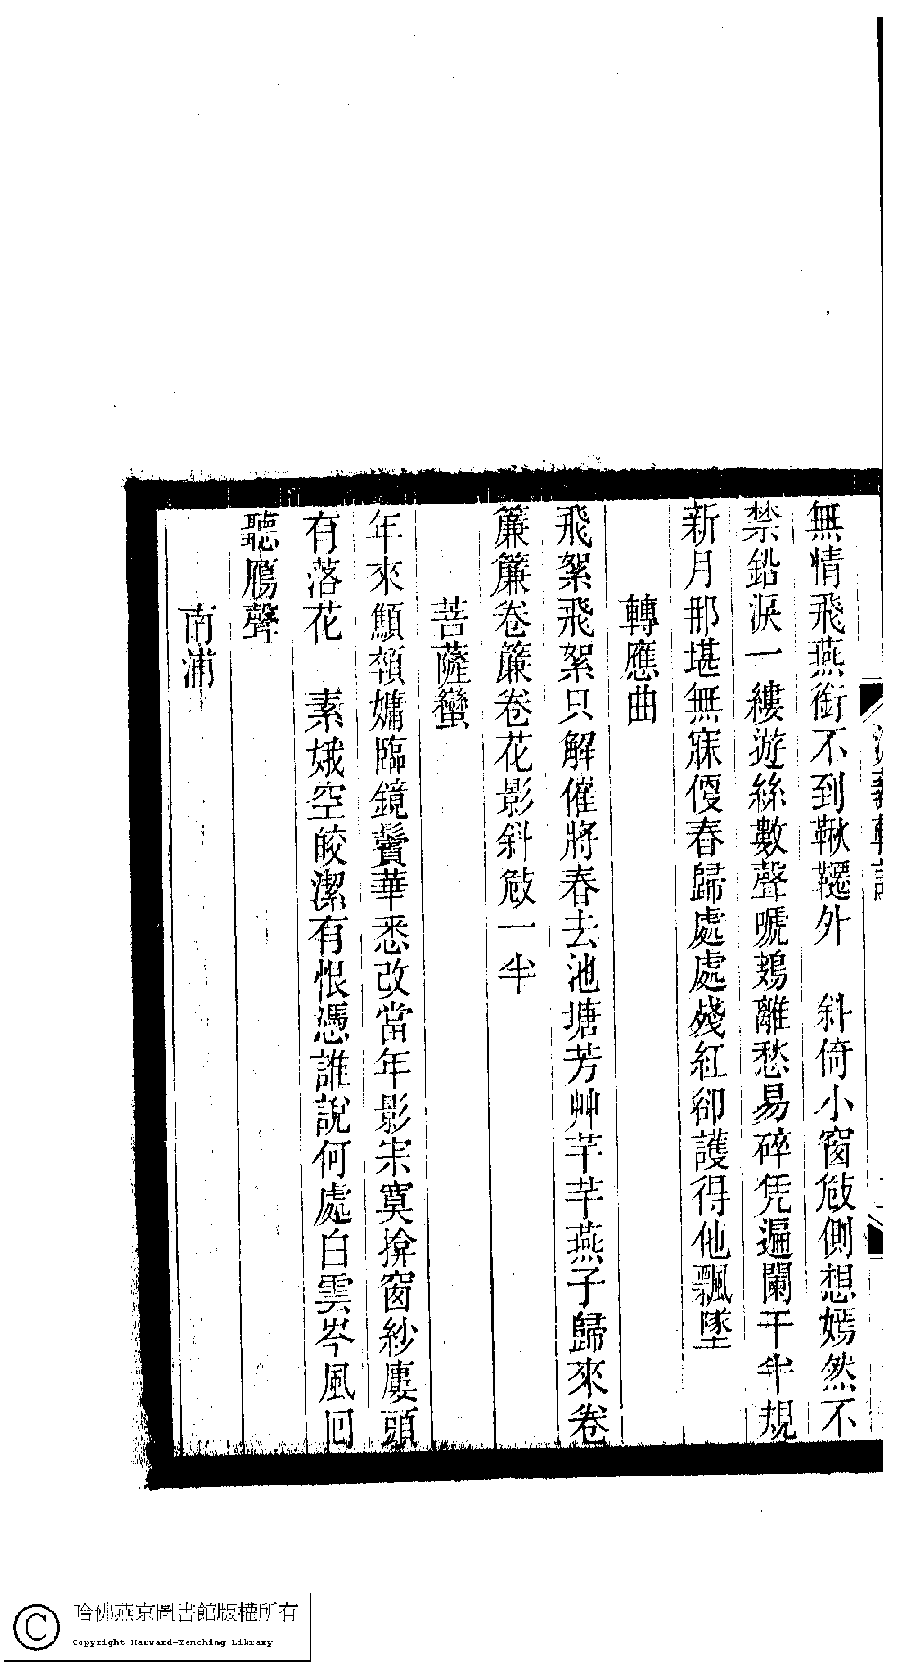 無情飛燕銜不到鞦韆外　斜倚小窗攲側想嫣然不
禁鉛淚一縷遊絲數聲嗁鴂離愁易碎凭遍闌干半規
新月那堪無寐　春歸處處殘紅卻護得他飄墜
轉應曲
飛絮飛絮只解催將春去池塘芳艸芊芊燕子歸來卷
簾簾卷簾卷花影斜攲一半
菩薩蠻
年來顦顇嬾臨鏡鬢華悉改當年影宋寞掩窗紗廔頭
有落花　素娥空皎潔有恨憑誰說何處白雲岑風回
聽鴈聲
南浦
哈佛燕京圖書館版權所有
Copyright Harvard-Yenching Library